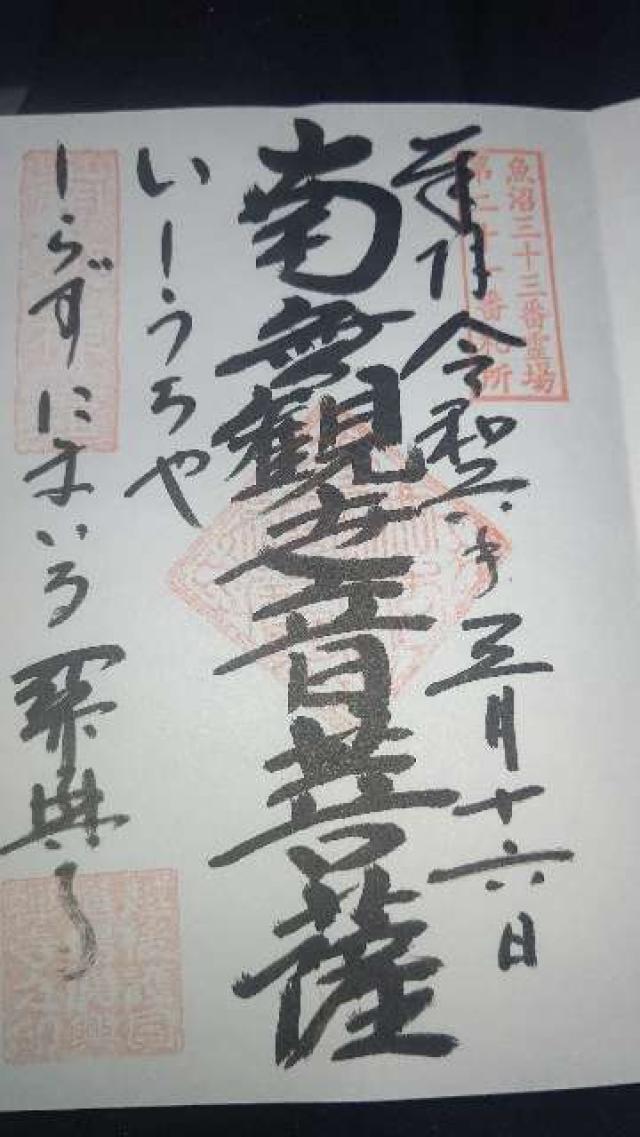 魚沼三十三番霊場
第二十一番札所
奉拝 令和六年三月十六日
南無観世音菩薩
いしうちや
しらずにまいる